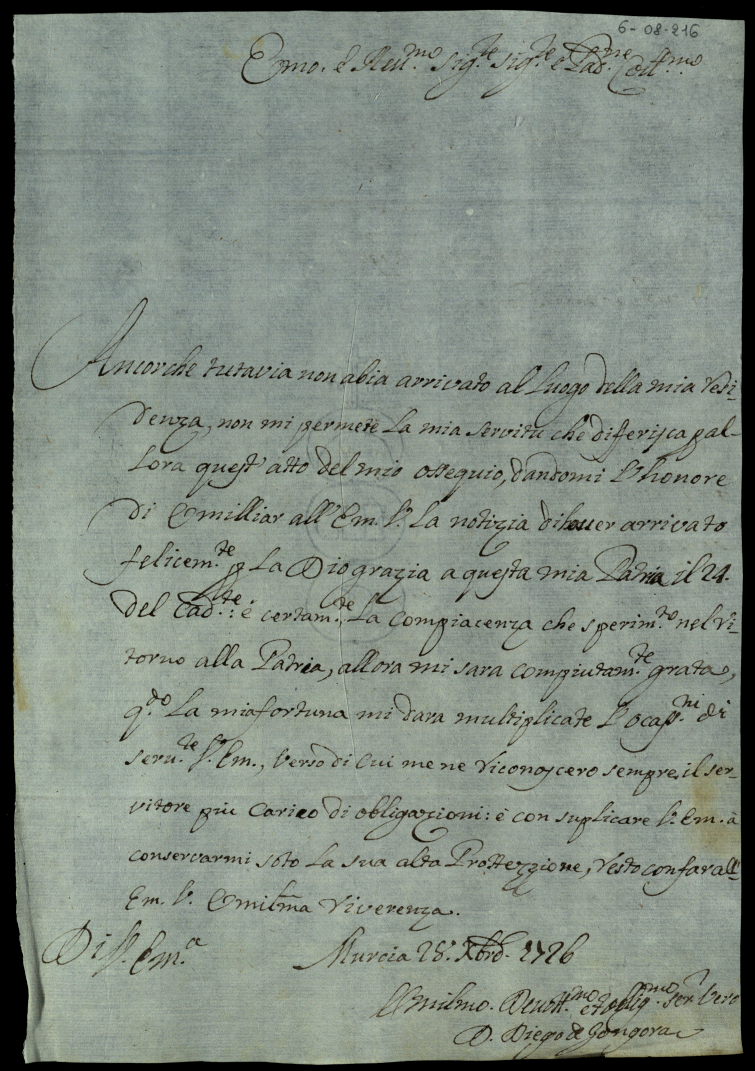 6-08-216
Emo. e Reu.mo Sig.re Sig.re e Pad.ne Coll.mo
Ancorche tutavia non abia arrivato al Luogo della mia resi-
denza, non mi permete La mia servitu che diferisca p al-
Lora quest'atto del mio ossequio, dandomi L'honore
di Omilliar all'Em. V. La notizia di hauer arrivato
felicem.te p La Dio grazia a questa mia Patria il 24.
del Cad.te: e certam.te La compiacenza che sperim.to nel ri-
torno alla Patria, allora mi sara compiutam.te grata,
q.do La mia fortuna mi dara multiplicate L'ocass.ni di
seru.re V. Em., verso di cui me ne riconoscero sempre il ser-
vitore piu carico di obligazioni: e con suplicare V. Em. à
conservarmi soto La sua alta Prottezzione, resto con far all'
Em. V. Omilma riverenza.
Di V. Em.a Murcia 28. Xbre. 1726
Umilmo. Deuott.mo et oblig.mo ser.r vero
D. Diego de Gongora